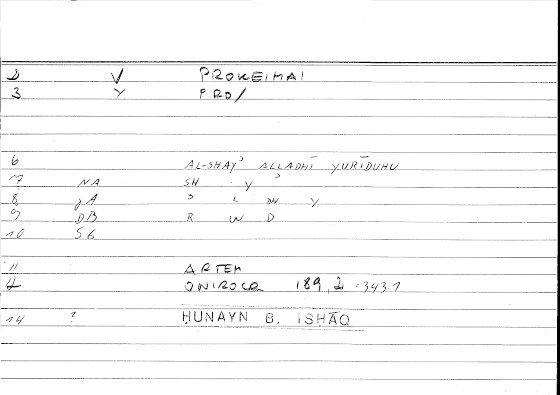 2 V PROKEIMAI
3 Y PRO/
6 AL-SHAYʾ ALLADHĪ YURĪDUHU
7 NA SH . Y ʾ
8 jA ʾ L DH Y
9 DB R W D
10 56
11 ARTEM
ONIROCR 189, 2 - 343.1
14 ? ḤUNAYN B. ISḤĀQ